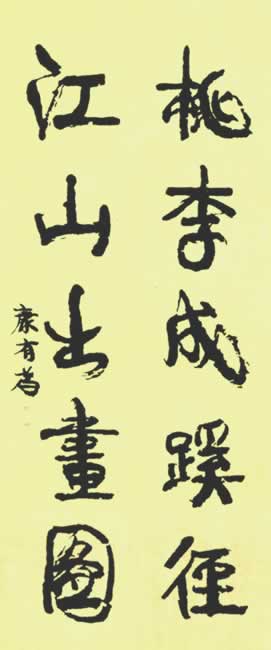 桃李成蹊徑
江山出畫圖
康有為